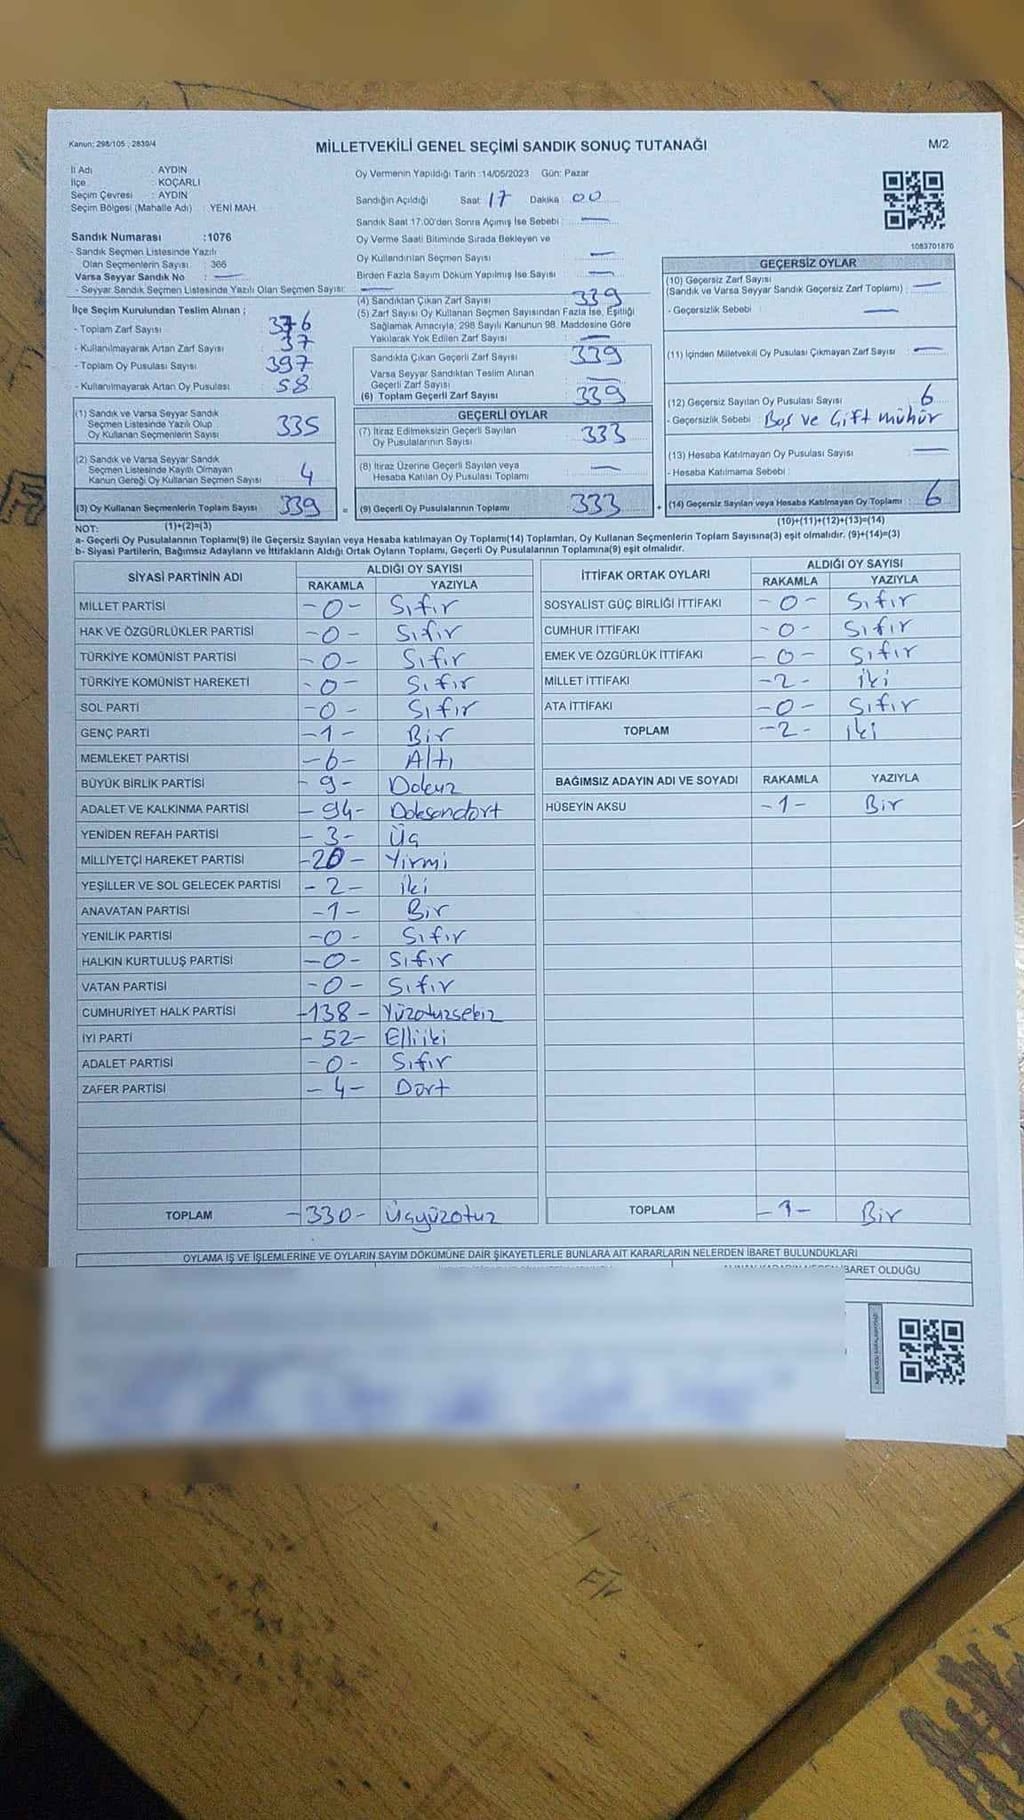 Kanun; 298/105 ; 2839/4
MİLLETVEKİLİ GENEL SEÇİMİ SANDIK SONUÇ TUTANAĞI
M/2
İl Adı : AYDIN
İlçe : KOÇARLI
Seçim Çevresi : AYDIN
Seçim Bölgesi (Mahalle Adı) : YENİ MAH.
Sandık Numarası :1076
- Sandık Seçmen Listesinde Yazılı
Olan Seçmenlerin Sayısı : 366
Varsa Seyyar Sandık No : —
- Seyyar Sandık Seçmen Listesinde Yazılı Olan Seçmen Sayısı: —
Oy Vermenin Yapıldığı Tarih :14/05/2023 Gün: Pazar
Sandığın Açıldığı Saat 17 Dakika 00
Sandık Saat 17.00'den Sonra Açımış İse Sebebi : —
Oy Verme Saati Bitiminde Sırada Bekleyen ve
Oy Kullandırılan Seçmen Sayısı : —
Birden Fazla Sayım Döküm Yapılmış İse Sayısı : —
1083701876
İlçe Seçim Kurulundan Teslim Alınan ;
- Toplam Zarf Sayısı : 376
- Kullanılmayarak Artan Zarf Sayısı : 37
- Toplam Oy Pusulası Sayısı : 397
- Kullanılmayarak Artan Oy Pusulası : 58
(1) Sandık ve Varsa Seyyar Sandık
Seçmen Listesinde Yazılı Olup
Oy Kullanan Seçmenlerin Sayısı : 335
(2) Sandık ve Varsa Seyyar Sandık
Seçmen Listesinde Kayıtlı Olmayan
Kanun Gereği Oy Kullanan Seçmen Sayısı : 4
(3) Oy Kullanan Seçmenlerin Toplam Sayısı : 339
(1)+(2)=(3)
(4) Sandıktan Çıkan Zarf Sayısı : 339
(5) Zarf Sayısı Oy Kullanan Seçmen Sayısından Fazla İse, Eşitliği
Sağlamak Amacıyla, 298 Sayılı Kanunun 98. Maddesine Göre
Yakılarak Yok Edilen Zarf Sayısı : —
Sandıkta Çıkan Geçerli Zarf Sayısı : 339
Varsa Seyyar Sandıktan Teslim Alınan
Geçerli Zarf Sayısı : —
(6) Toplam Geçerli Zarf Sayısı : 339
GEÇERLİ OYLAR
(7) İtiraz Edilmeksizin Geçerli Sayılan
Oy Pusulalarının Sayısı : 333
(8) İtiraz Üzerine Geçerli Sayılan veya
Hesaba Katılan Oy Pusulası Toplamı : —
(9) Geçerli Oy Pusulalarının Toplamı : 333
GEÇERSİZ OYLAR
(10) Geçersiz Zarf Sayısı
(Sandık ve Varsa Seyyar Sandık Geçersiz Zarf Toplamı) : —
- Geçersizlik Sebebi : —
(11) İçinden Milletvekili Oy Pusulası Çıkmayan Zarf Sayısı : —
(12) Geçersiz Sayılan Oy Pusulası Sayısı : 6
- Geçersizlik Sebebi : Boş ve Çift mühür
(13) Hesaba Katılmayan Oy Pusulası Sayısı : —
- Hesaba Katılmama Sebebi :
(14) Geçersiz Sayılan veya Hesaba Katılmayan Oy Toplamı : 6
(10)+(11)+(12)+(13)=(14)
NOT:
a- Geçerli Oy Pusulalarının Toplamı(9) ile Geçersiz Sayılan veya Hesaba katılmayan Oy Toplamı(14) Toplamları, Oy Kullanan Seçmenlerin Toplam Sayısına(3) eşit olmalıdır. (9)+(14)=(3)
b- Siyasi Partilerin, Bağımsız Adayların ve İttifakların Aldığı Ortak Oyların Toplamı, Geçerli Oy Pusulalarının Toplamına(9) eşit olmalıdır.
SİYASİ PARTİNİN ADI ALDIĞI OY SAYISI
RAKAMLA YAZIYLA
MİLLET PARTİSİ -0- Sıfır
HAK VE ÖZGÜRLÜKLER PARTİSİ -0- Sıfır
TÜRKİYE KOMÜNİST PARTİSİ -0- Sıfır
TÜRKİYE KOMÜNİST HAREKETİ -0- Sıfır
SOL PARTİ -0- Sıfır
GENÇ PARTİ -1- Bir
MEMLEKET PARTİSİ -6- Altı
BÜYÜK BİRLİK PARTİSİ -9- Dokuz
ADALET VE KALKINMA PARTİSİ -94- Doksandört
YENİDEN REFAH PARTİSİ -3- Üç
MİLLİYETÇİ HAREKET PARTİSİ -20- Yirmi
YEŞİLLER VE SOL GELECEK PARTİSİ -2- iki
ANAVATAN PARTİSİ -1- Bir
YENİLİK PARTİSİ -0- Sıfır
HALKIN KURTULUŞ PARTİSİ -0- Sıfır
VATAN PARTİSİ -0- Sıfır
CUMHURİYET HALK PARTİSİ -138- Yüzotuzsekiz
İYİ PARTİ -52- Elliiki
ADALET PARTİSİ -0- Sıfır
ZAFER PARTİSİ -4- Dört
TOPLAM -330- Üçyüzotuz
İTTİFAK ORTAK OYLARI ALDIĞI OY SAYISI
RAKAMLA YAZIYLA
SOSYALİST GÜÇ BİRLİĞİ İTTİFAKI -0- Sıfır
CUMHUR İTTİFAKI -0- Sıfır
EMEK VE ÖZGÜRLÜK İTTİFAKI -0- Sıfır
MİLLET İTTİFAKI -2- iki
ATA İTTİFAKI -0- Sıfır
TOPLAM -2- iki
BAĞIMSIZ ADAYIN ADI VE SOYADI RAKAMLA YAZIYLA
HÜSEYİN AKSU -1- Bir
TOPLAM -1- Bir
OYLAMA İŞ VE İŞLEMLERİNE VE OYLARIN SAYIM DÖKÜMÜNE DAİR ŞİKAYETLERLE BUNLARA AİT KARARLARIN NELERDEN İBARET BULUNDUKLARI
İBARET OLDUĞU